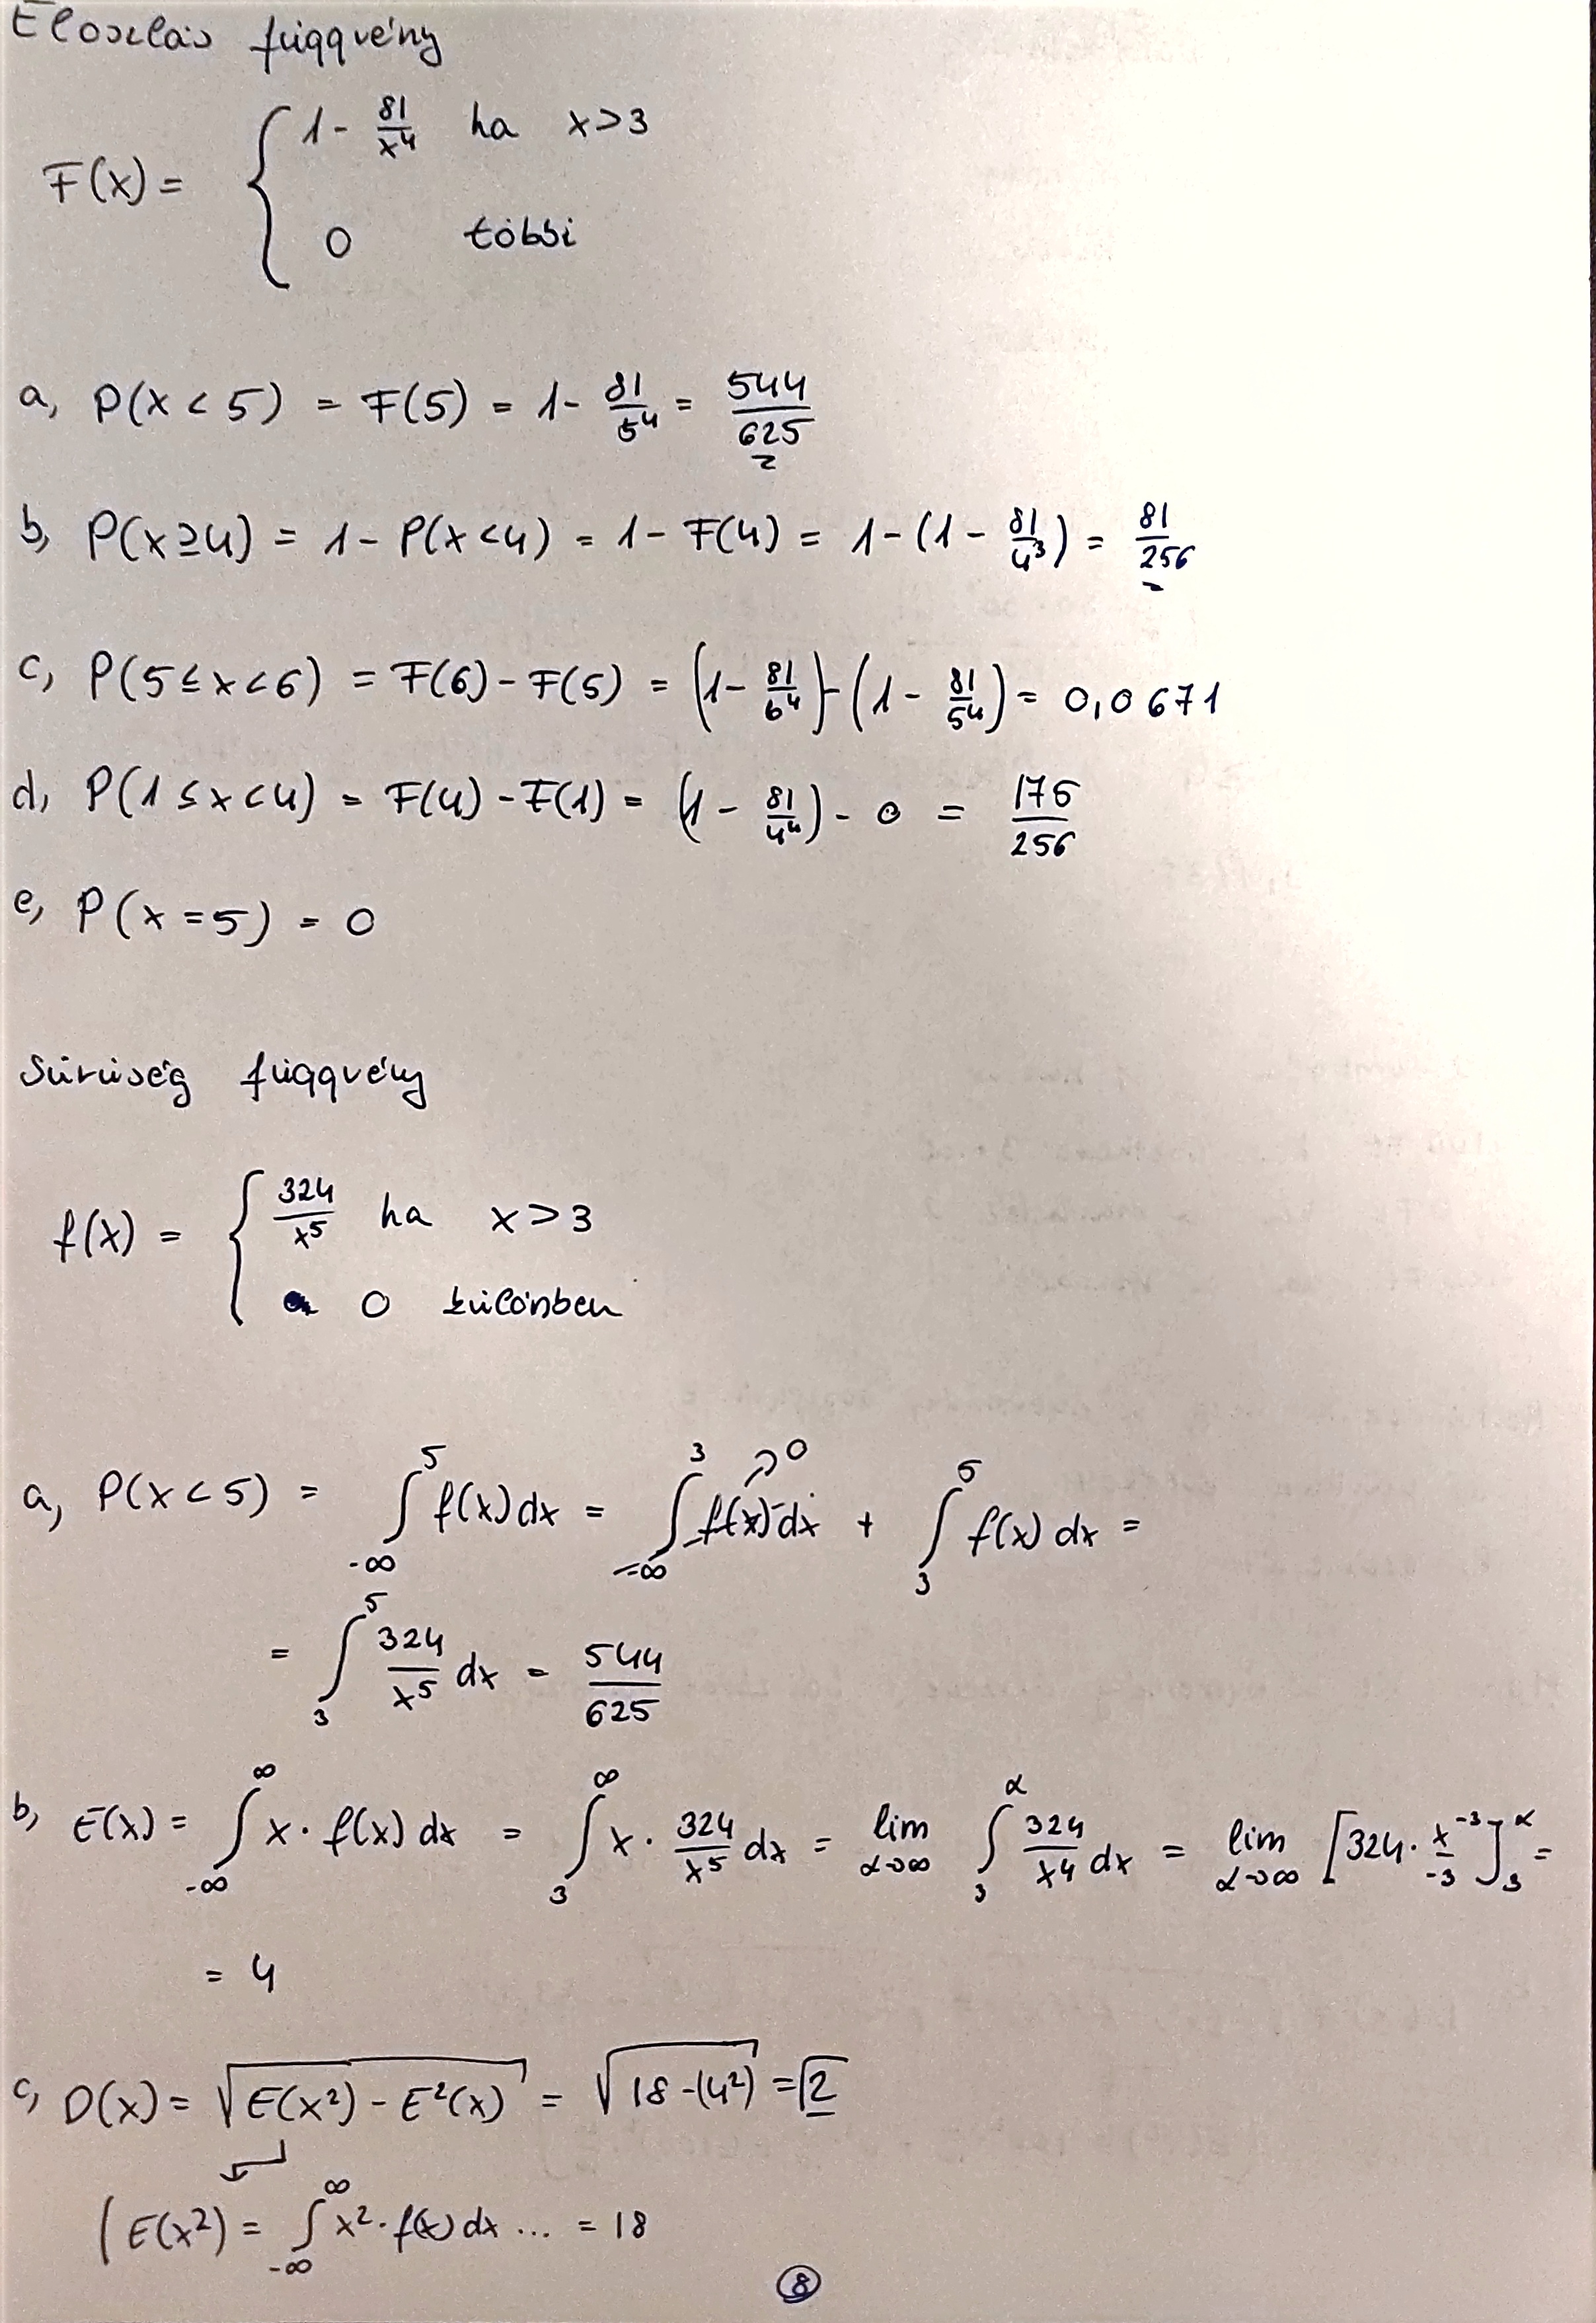 Eloszlás függvény
F(x) = { 1 - 81/x⁴ ha x>3
0 többi
a, P(x < 5) = F(5) = 1 - 81/5⁴ = 544/625
b, P(x≥4) = 1 - P(x<4) = 1 - F(4) = 1-(1 - 81/4³) = 81/256
c, P(5≤x<6) = F(6) - F(5) = (1 - 81/6⁴)-(1 - 81/5⁴) = 0,0671
d, P(1≤x<4) = F(4) - F(1) = (1 - 81/4⁴) - 0 = 175/256
e, P(x=5) = 0
Sűrűség függvény
f(x) = { 324/x⁵ ha x>3
0 különben
a, P(x<5) = ∫_{-∞}^{5} f(x)dx = ∫_{-∞}^{3} f(x)dx → 0 + ∫_{3}^{5} f(x)dx =
= ∫_{3}^{5} 324/x⁵ dx = 544/625
b, E(x) = ∫_{-∞}^{∞} x·f(x)dx = ∫_{3}^{∞} x·324/x⁵ dx = lim_{α→∞} ∫_{3}^{α} 324/x⁴ dx = lim_{α→∞} [324·x⁻³/-3]_{3}^{α} =
= 4
c, D(x) = √(E(x²) - E²(x)) = √(18-(4²)) = √2
(E(x²) = ∫_{-∞}^{∞} x²·f(x)dx ... = 18
8